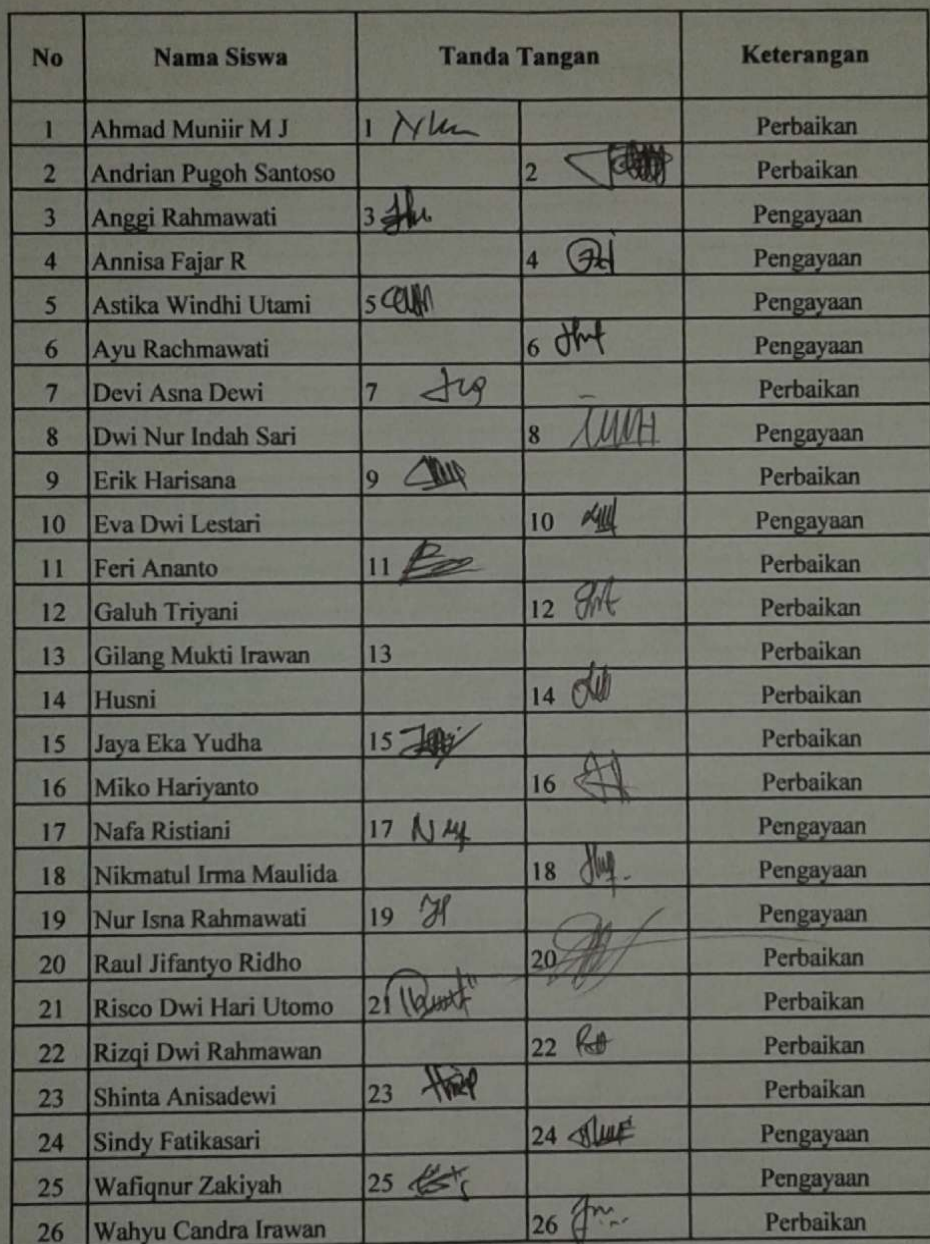 No Nama Siswa Tanda Tangan Keterangan
1 Ahmad Muniir M J 1 Perbaikan
2 Andrian Pugoh Santoso 2 Perbaikan
3 Anggi Rahmawati 3 Pengayaan
4 Annisa Fajar R 4 Pengayaan
5 Astika Windhi Utami 5 Pengayaan
6 Ayu Rachmawati 6 Pengayaan
7 Devi Asna Dewi 7 Perbaikan
8 Dwi Nur Indah Sari 8 Pengayaan
9 Erik Harisana 9 Perbaikan
10 Eva Dwi Lestari 10 Pengayaan
11 Feri Ananto 11 Perbaikan
12 Galuh Triyani 12 Perbaikan
13 Gilang Mukti Irawan 13 Perbaikan
14 Husni 14 Perbaikan
15 Jaya Eka Yudha 15 Perbaikan
16 Miko Hariyanto 16 Perbaikan
17 Nafa Ristiani 17 Pengayaan
18 Nikmatul Irma Maulida 18 Pengayaan
19 Nur Isna Rahmawati 19 Pengayaan
20 Raul Jifantyo Ridho 20 Perbaikan
21 Risco Dwi Hari Utomo 21 Perbaikan
22 Rizqi Dwi Rahmawan 22 Perbaikan
23 Shinta Anisadewi 23 Perbaikan
24 Sindy Fatikasari 24 Pengayaan
25 Wafiqnur Zakiyah 25 Pengayaan
26 Wahyu Candra Irawan 26 Perbaikan